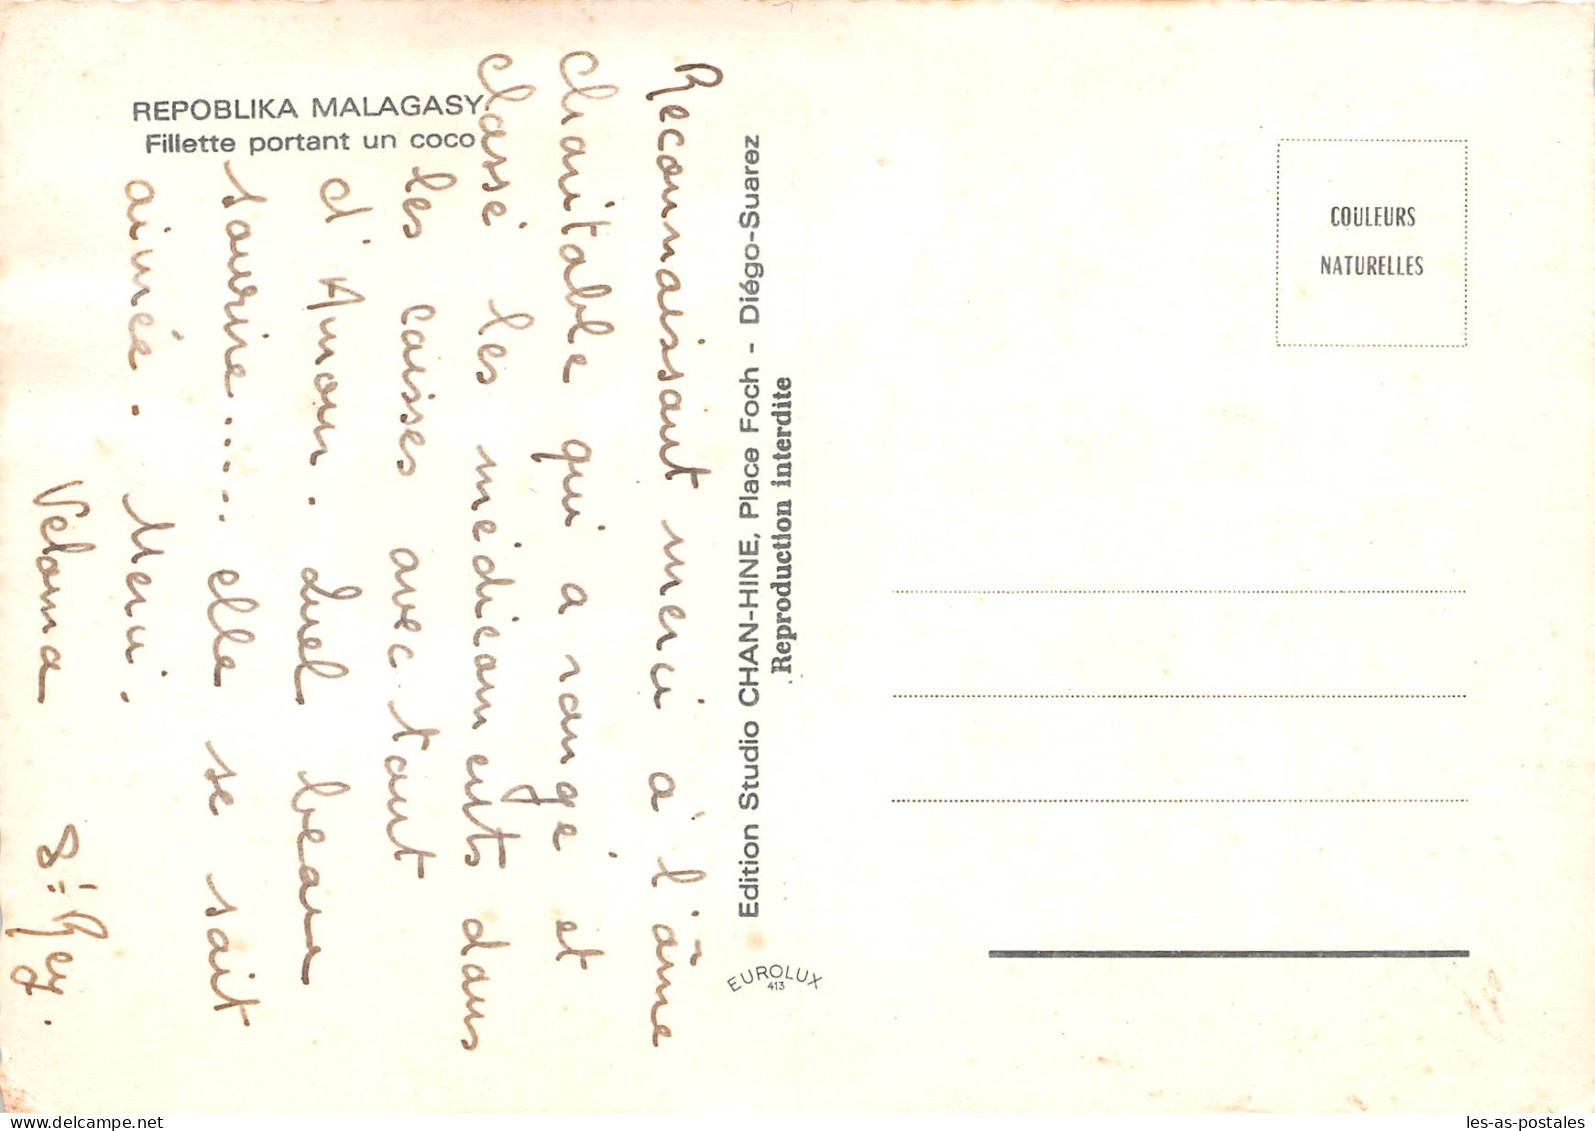 REPOBLIKA MALAGASY
Fillette portant un coco
Reconnaissant merci à l'âme
charitable qui a rangé et
classé les médicaments dans
les caisses avec tant
d'Amour. Quel beau
sourire..... elle se sait
aimée. Merci.
Veloma
Edition Studio CHAN-HINE, Place Foch - Diégo-Suarez
Reproduction interdite
EUROLUX
413
COULEURS
NATURELLES
les-as-postales